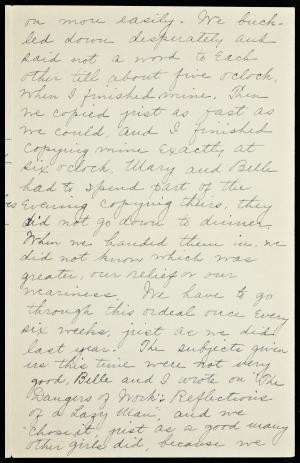 on more easily. We buck-
led down desperately and
said not a word to Each
other till about five oclock,
when I finished mine. Then
we copied just as fast as
we could, and I finished
copying mine Exactly at
six oclock. Mary and Belle
had to spend part of the
Evening copying theirs, they
did not go down to dinner.
When we handed them in, we
did not know which was
greater, our relief or our
weariness. We have to go
through this ordeal once Every
six weeks, just as we did
last year. The subjects given
us this time were not very
good, Belle and I wrote on "The
Dangers of Work: Reflections
of a Lazy Man", and we
chose it, just as a good many
other girls did, because we